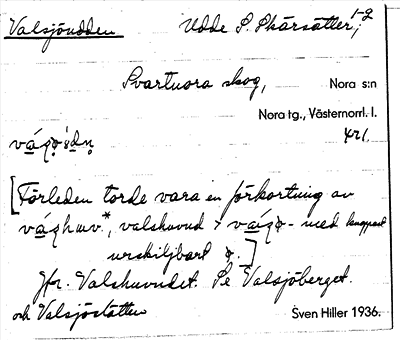 Valsjöudden Udde S. Skärsätter, 1-2
Svartnora skog, Nora s:n
Nora tg., Västernorrl. l.
421.
[Förleden torde vara en förkortning av
valshuvud > med knappast
urskiljbart ]
Jfr. Valshuvudet. Se Valsjöberget.
och Valsjöslåtten
Sven Hiller 1936.